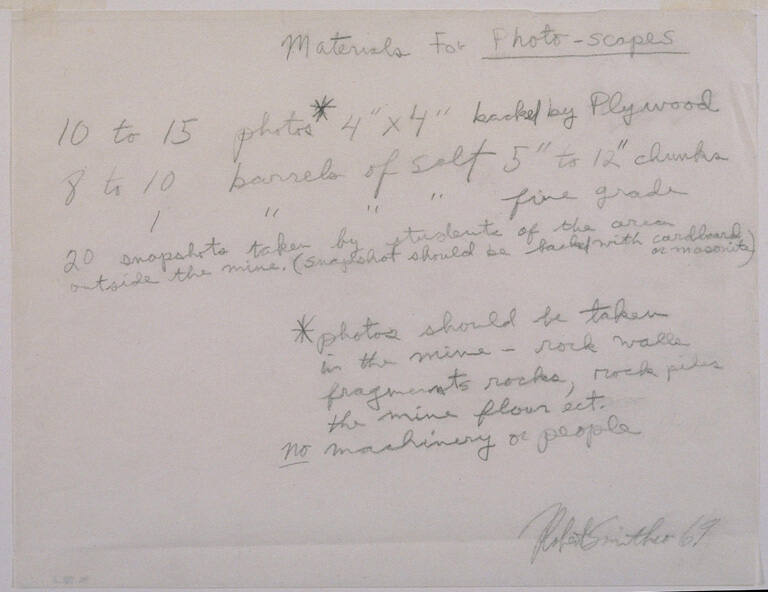 Materials For Photo-scapes
10 to 15 photos* 4" x 4" backed by Plywood
8 to 10 barrels of salt 5" to 12" chunks
1 " " " fine grade
20 snapshots taken by students of the area
outside the mine. (snapshot should be backed with cardboard
or masonite)
*photos should be taken
in the mine – rock walls
fragments rocks, rock piles
the mine flour ect.
no machinery or people
Robert Smithson 69